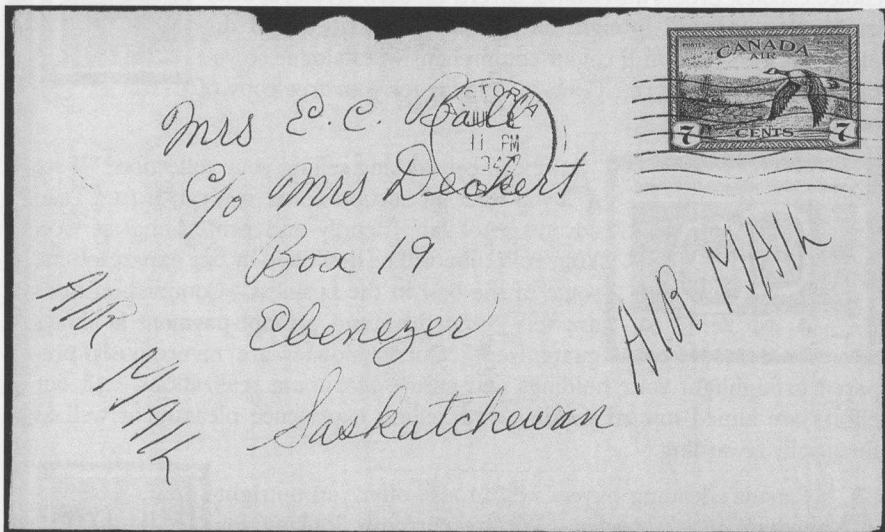 POSTES POSTAGE
CANADA
AIR
7 CENTS 7
VICTORIA
11 PM
Mrs E. C. Ball
C/o Mrs Deckert
Box 19
Ebenezer
Saskatchewan
AIR MAIL
AIR MAIL